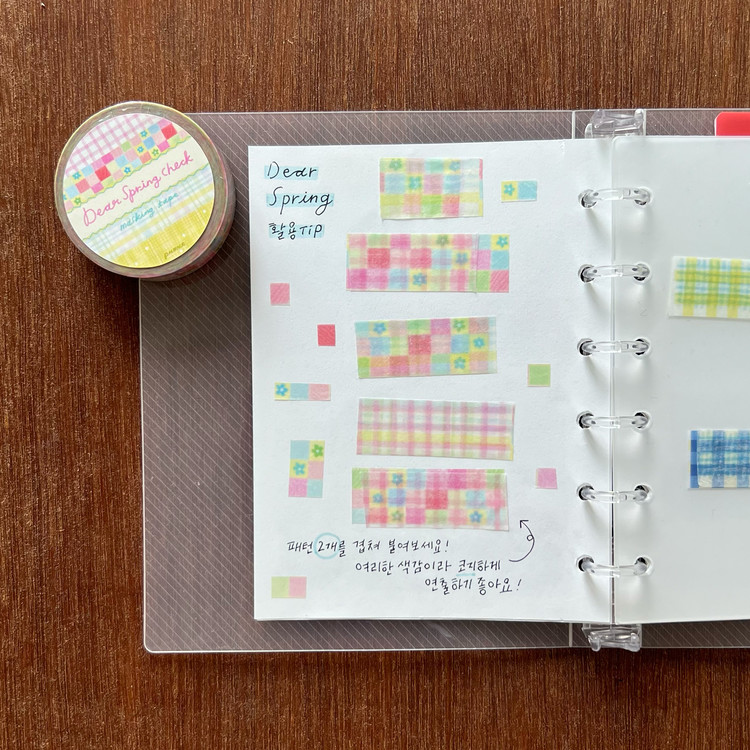 Dear Spring check
masking tape
Dear
Spring
활용TiP
패턴 2개를 겹쳐 붙여보세요!
여리한 색감이라 코지하게
연출하기 좋아요!